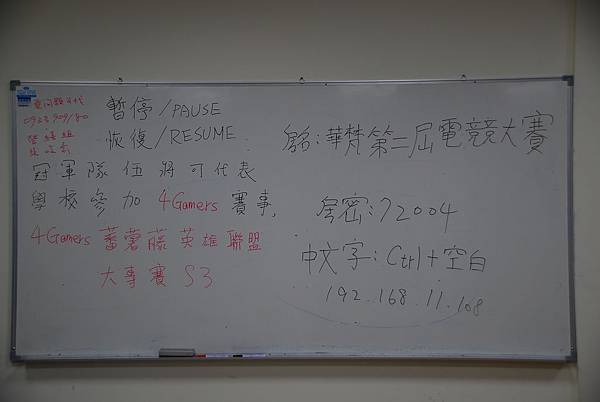 暫停/PAUSE
恢復/RESUME
冠軍隊伍將可代表
學校參加 4Gamers 賽事,
4Gamers 薔薇藤 英雄聯盟
大專賽 S3
名:華梵第二屆電競大賽
密:72004
中文字:Ctrl+空白
192.168.11.108